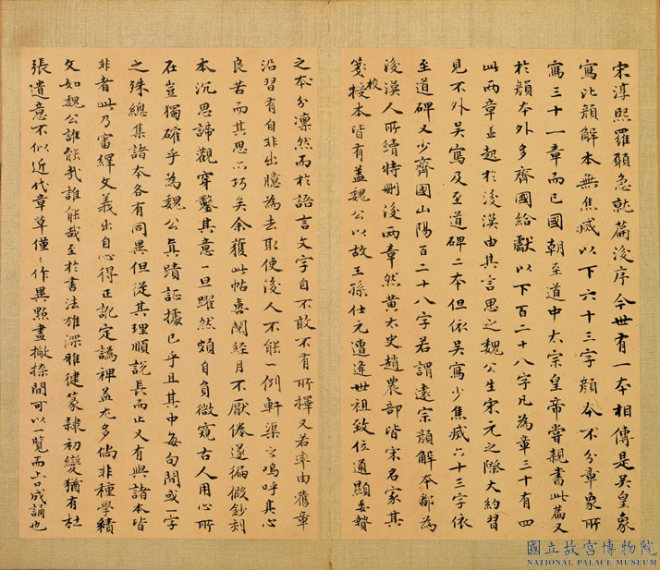 宋淳熙羅願急就篇後序今世有一本相傳是吳皇象
寫比顏解本無焦滅以下六十三字顏本不分章象所
寫三十一章而已國朝至道中太宗皇帝嘗親書此篇又
於顏本外多齊國給獻以下百二十八字凡為章三十有四
此兩章並起於後漢由其言思之魏公生宋元之際大約習
見不外吳寫及至道碑二本但依吳寫少焦滅六十三字依
至道碑又少齊國山陽百二十八字若謂遠宗顏解本鄙為
後漢人所續特刪後兩章然黃太史趙農部皆宋名家其
箋校本皆有蓋魏公以故王孫仕元遭逢世祖致位通顯委贄
校
之本分凜然而於語言文字自不敢不有所擇又若率由舊章
沿習有自非出臆為去取使後人不能一例軒渠之嗚呼其心
良苦而其思亦巧矣余獲此帖喜閱經月不厭倦遂徧做鈔刻
本沉思諦觀穿鑿其意一旦躍然頗自負微窺古人用心所
在豈獨確乎為魏公真蹟証據已乎且其中每句間或一字
之殊總集諸本各有同異但從其理順說長而止又有與諸本皆
非者此乃審繹文義出自心得正訛定譌裨益尤多倘非種學績
文如魏公誰能哉誰能哉至於書法雄深雅健篆隸初變猶有杜
張遺意不似近代章草僅僅作異點畫撇捺間可以一覽而上口成誦也
國立故宮博物院
NATIONAL PALACE MUSEUM